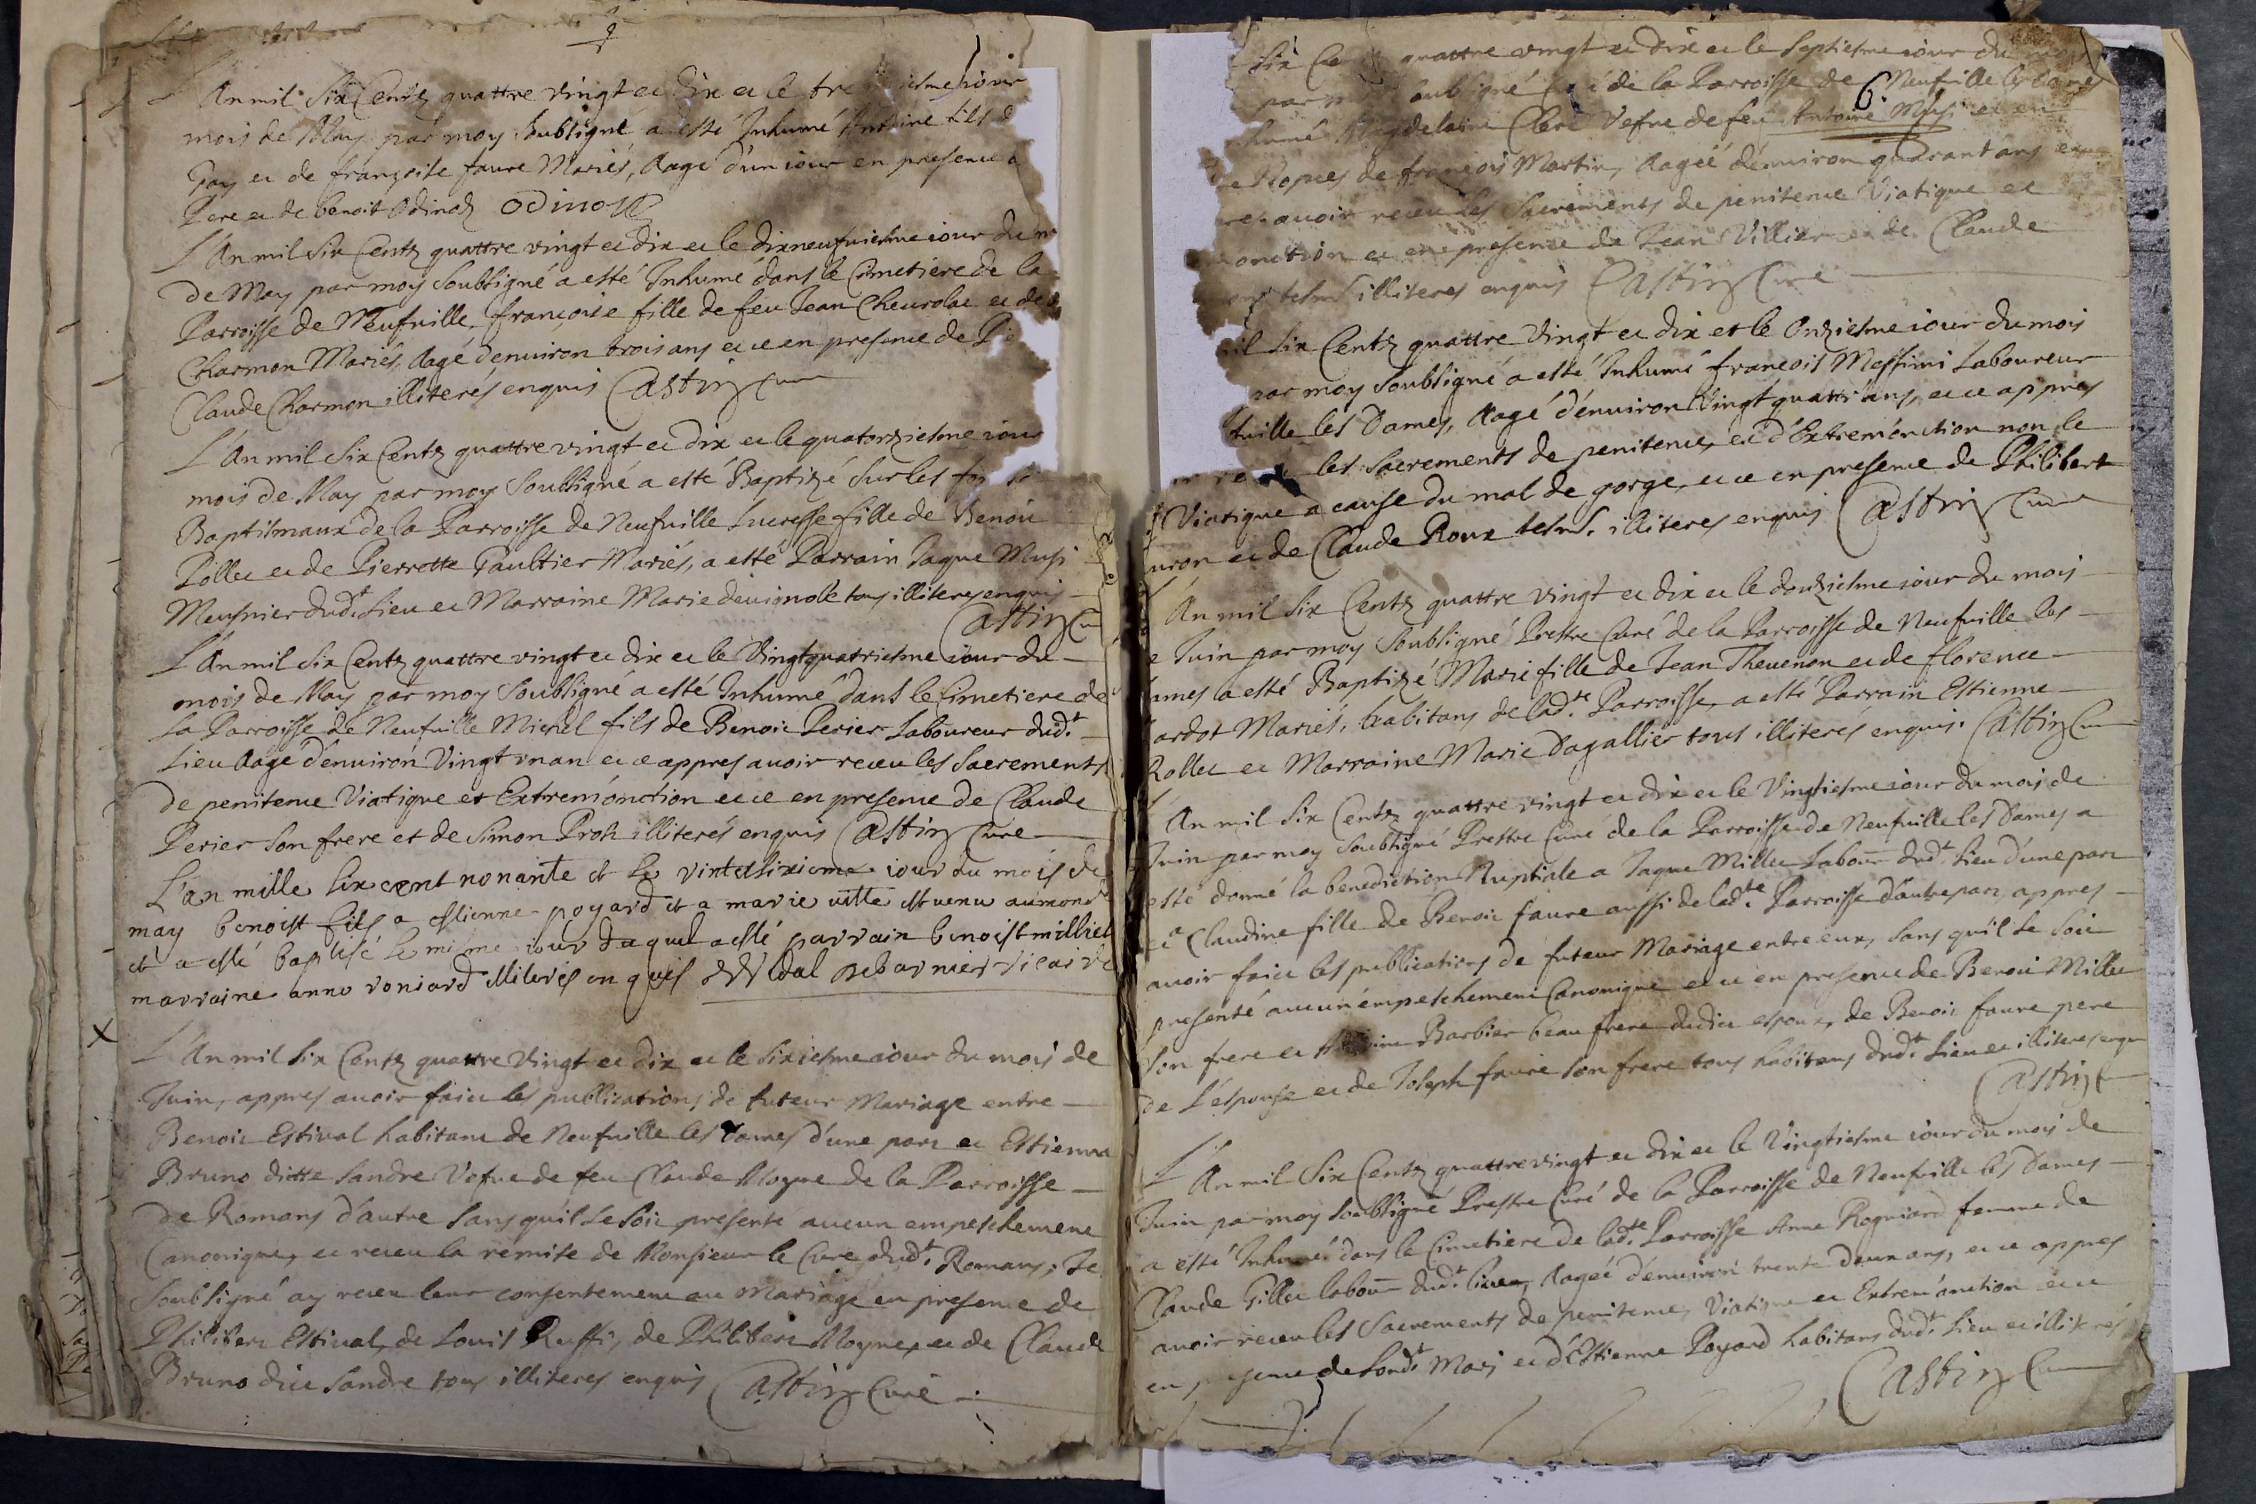 L'An mil Six Centz quattre vingt et dix et le tre iesme iour
mois de May par moy Soubsigné a esté Inhumé Antoine fils d
Gay et de françoise faure Mariés, Aagé d'un iour en presence d
Pere et de benoit Odinoz ODINOZ
L'An mil Six Centz quattre vingt et dix et le dixneufuiesme iour du m
De May par moy Soubsigné a esté Inhumé dans le Cimetiere de la
Parroisse de Neufuille, françoise fille de feu Jean Cheurolat et de
Charmon Mariés, Aagé d'enuiron trois ans et ce en presence de Pi
Claude Charmon illiterés enquis Castin Curé
L'An mil Six Centz quattre vingt et dix et le quatorziesme iour
mois de May par moy Soubsigné a esté Baptizé Sur les fon
Baptismaux de la Parroisse de Neufuille Lucresse fille de Benoit
Pollet et de Pierrette Gaultier Mariés, a esté Parrain Jaque Musi
Meusnier dudt. Lieu et Marraine Marie deuignole tous illiteres enquis
Castin Cu
L'An mil Six Centz quattre vingt et dix et le Vingtquatriesme iour du
mois de May par moy Soubsigné a esté Inhumé dans le Cimetiere de
la Parroisse de Neufuille Michel fils de Benoit Perier Laboureur dudt.
Lieu Aagé d'enuiron Vingt vn an et ce appres auoir receu les Sacrements
de penitence Viatique et Extremónction et ce en presence de Claude
Perier Son frere et de Simon Prost illiterés enquis Castin Curé
L'an mille six cent nonante et le vintesixieme iour du mois de
may benoist fils a estienne poyard et a marie uitte est venu au monde
et a esté baptisé le mesme iour duquel a esté parrain benoist milliet
marraine anne roniard illiterés enquis vicaire
X
L'An mil Six Centz quattre Vingt et dix et le Sixiesme iour du mois de
Juin, appres auoir faict les publications de futeur Mariage entre
Benoit Estiual habitant de Neufuille les Dames d'une part et Estienna
Bruno ditte Sandre Vefue de feu Claude Moyne de la Parroisse
de Romans d'autre Sans quil Se Soit presenté aucun empeschement
Canonique, et receu la remise de Monsieur le Curé dudt. Romans, Je
Soubsigné ay receu leur consentement au Mariage en presence de
Philibert Estiual, de Louis Ruffi, de Philibert Moyne, et de Claude
Bruno dict Sandre tous illiteres enquis Castin Curé
6
Six Ce quattre vingt et dix et le Septiesme iour du
par m oubsigné de la Parroisse de Neufuille les Dames
humé Magdelaine Clerc Vefue de feu Antoine Musi et en
Nopces de françois Martin, Aagée d'enuiron quarant ans
auoir receu les Sacrements de penitence Viatique et
onction et en presence de Jean Villier et de Claude
tesms. illiteres enquis Castin Curé
il Six Centz quattre Vingt et dix et le Onziesme iour du mois
par moy Soubsigné a esté Inhumé françois Messimi Laboureur
fuille les Dames, Aagé d'enuiron Vingt quattr'ans, et ce appres
les Sacrements de penitence, et d'Extremónction non le
Viatique a cause du mal de gorge, et ce en presence de Philibert
uron et de Claude Roux tesms. illiteres enquis Castin Curé
L'An mil Six Centz quattre vingt et dix et le douziesme iour du mois
de Juin par moy Soubsigné Prestre Curé de la Parroisse de Neufuille les
Dames a esté Baptizé Marie fille de Jean Theuenon et de florence
ardot Mariés, habitans de ladte. Parroisse, a esté Parrain Estienne
Rollet et Marraine Marie Dagallier tous illiterés enquis. Castin Cu
L'An mil Six Centz quattre vingt et dix et le Vingtiesme iour du mois de
Juin par moy Soubsigné Prestre Curé de la Parroisse de Neufuille les Dames a
esté donné la benediction Nuptiale a Jaque Millet Labour dudt. Lieu d'une part
et a Claudine fille de Benoit faure aussi de ladte. Parroisse d'autre part, appres
auoir faict les publications de futeur Mariage entre eux, Sans quil Se Soit
presenté aucun empeschement Canonique et ce en presence de Benoit Millet
Son frere et Barbier beau frere dudict espoux, de Benoit faure pere
de L'espouse et de Joseph faure Son frere tous habitans dudt. Lieu et illiteres enqu
Castin C
L'An mil Six Centz quattre vingt et dix et le Vingtiesme iour du mois de
Juin par moy Soubsigné Prestre Curé de la Parroisse de Neufuille les Dames
a esté Inhumé dans le Cimetiere de ladte. Parroisse Anne Rogniard femme de
Claude Gillet labour dudt. lieu, Aagée d'enuiron trente deux ans, et ce appres
auoir receu les Sacrements de penitence, Viatique et Extremónction et ce
en presence de Sondt. Mari et d'Estienne Poyard habitans dudt. Lieu et illiterés
Castin Cu